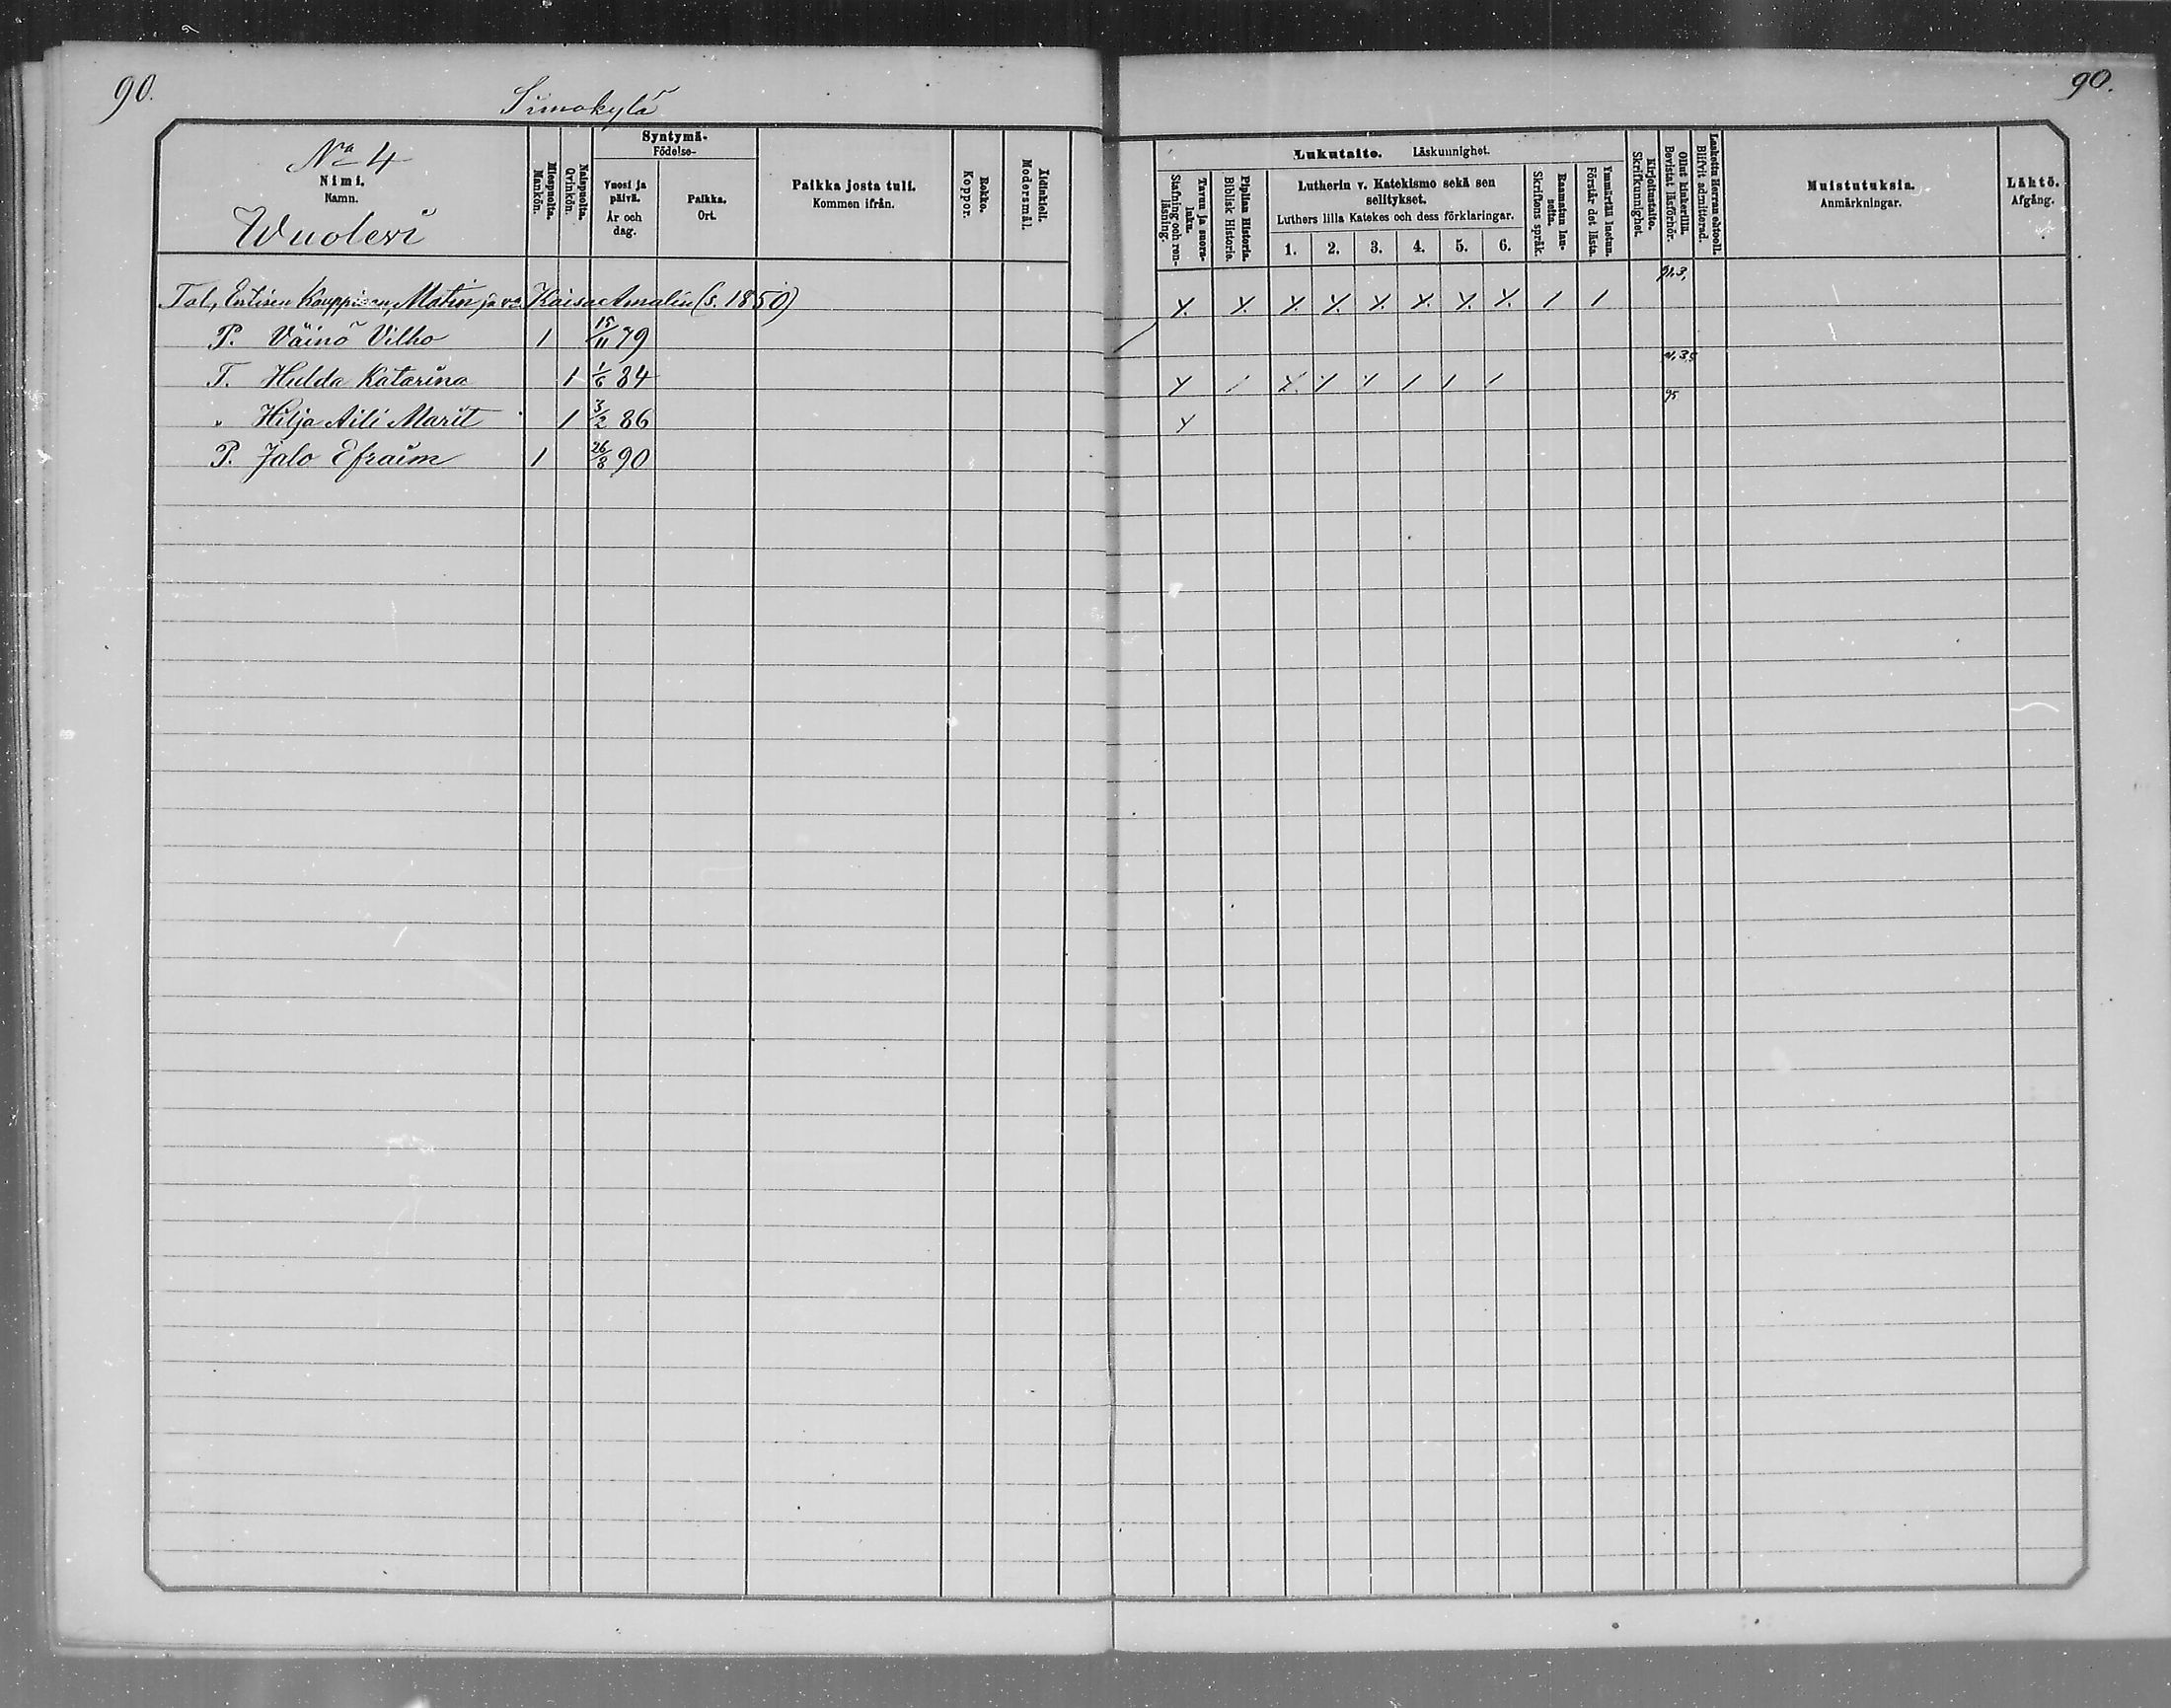 90.
Simokylä
90.
No 4
Nimi.
Namn.
Wuolevi
Miespuolia.
Mankön.
Naispuolia.
Qvinkön.
Syntymä-
Födelse-
Vuosi ja
päivä.
År och
dag.
Paikka.
Ort.
Paikka josta tuli.
Kommen ifrån.
Rokko.
Koppor.
Äidinkieli.
Modersmål.
Lukutaito. Läskunnighet.
Tavuu ja suora-
luku.
Stafning och ren-
läsning.
Piplian Historia.
Biblisk Historie.
Lutherin v. Katekismo sekä sen
selitykset.
Luthers lilla Katekes och dess förklaringar.
1. 2. 3. 4. 5. 6.
Raamatun lau-
seita.
Skriftens språk.
Ymmärtää luetun.
Förstår det lästa.
Kirjoitustaito.
Skrifkunnighet.
Ollut kinkerillä.
Bevistat läsförhör.
Laskettu Herran ehtooll.
Blifvit admitterad.
Muistutuksia.
Anmärkningar.
Lähtö.
Afgång.
Tal, Entisen Kauppisen, Matin ja v:o Kaisa Amalin (s. 1850) x. x. x. x. x. x. x. x. 1 1 91.3,
P. Väinö Vilho 1 15/11 79
T. Hulda Katarina 1 1/6 84 x / x. x x 1 1 1
" Hilja Aili Marit 1 3/2 86 x 95
P. Jalo Efraim 1 26/8 90